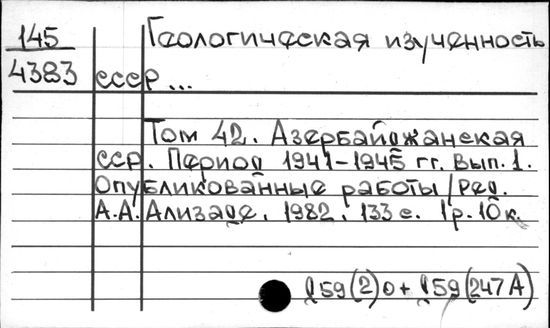 145
4383
Геологическая изученность
СССР ...
Том 42. Азербайджанская
ССР. Период 1941-1945 гг. Вып. 1.
Опубликованные работы / Ред.
А.А. Ализаде. 1982. 133 с. 1р. 10 к.
l59(2)0 + l59(247А)